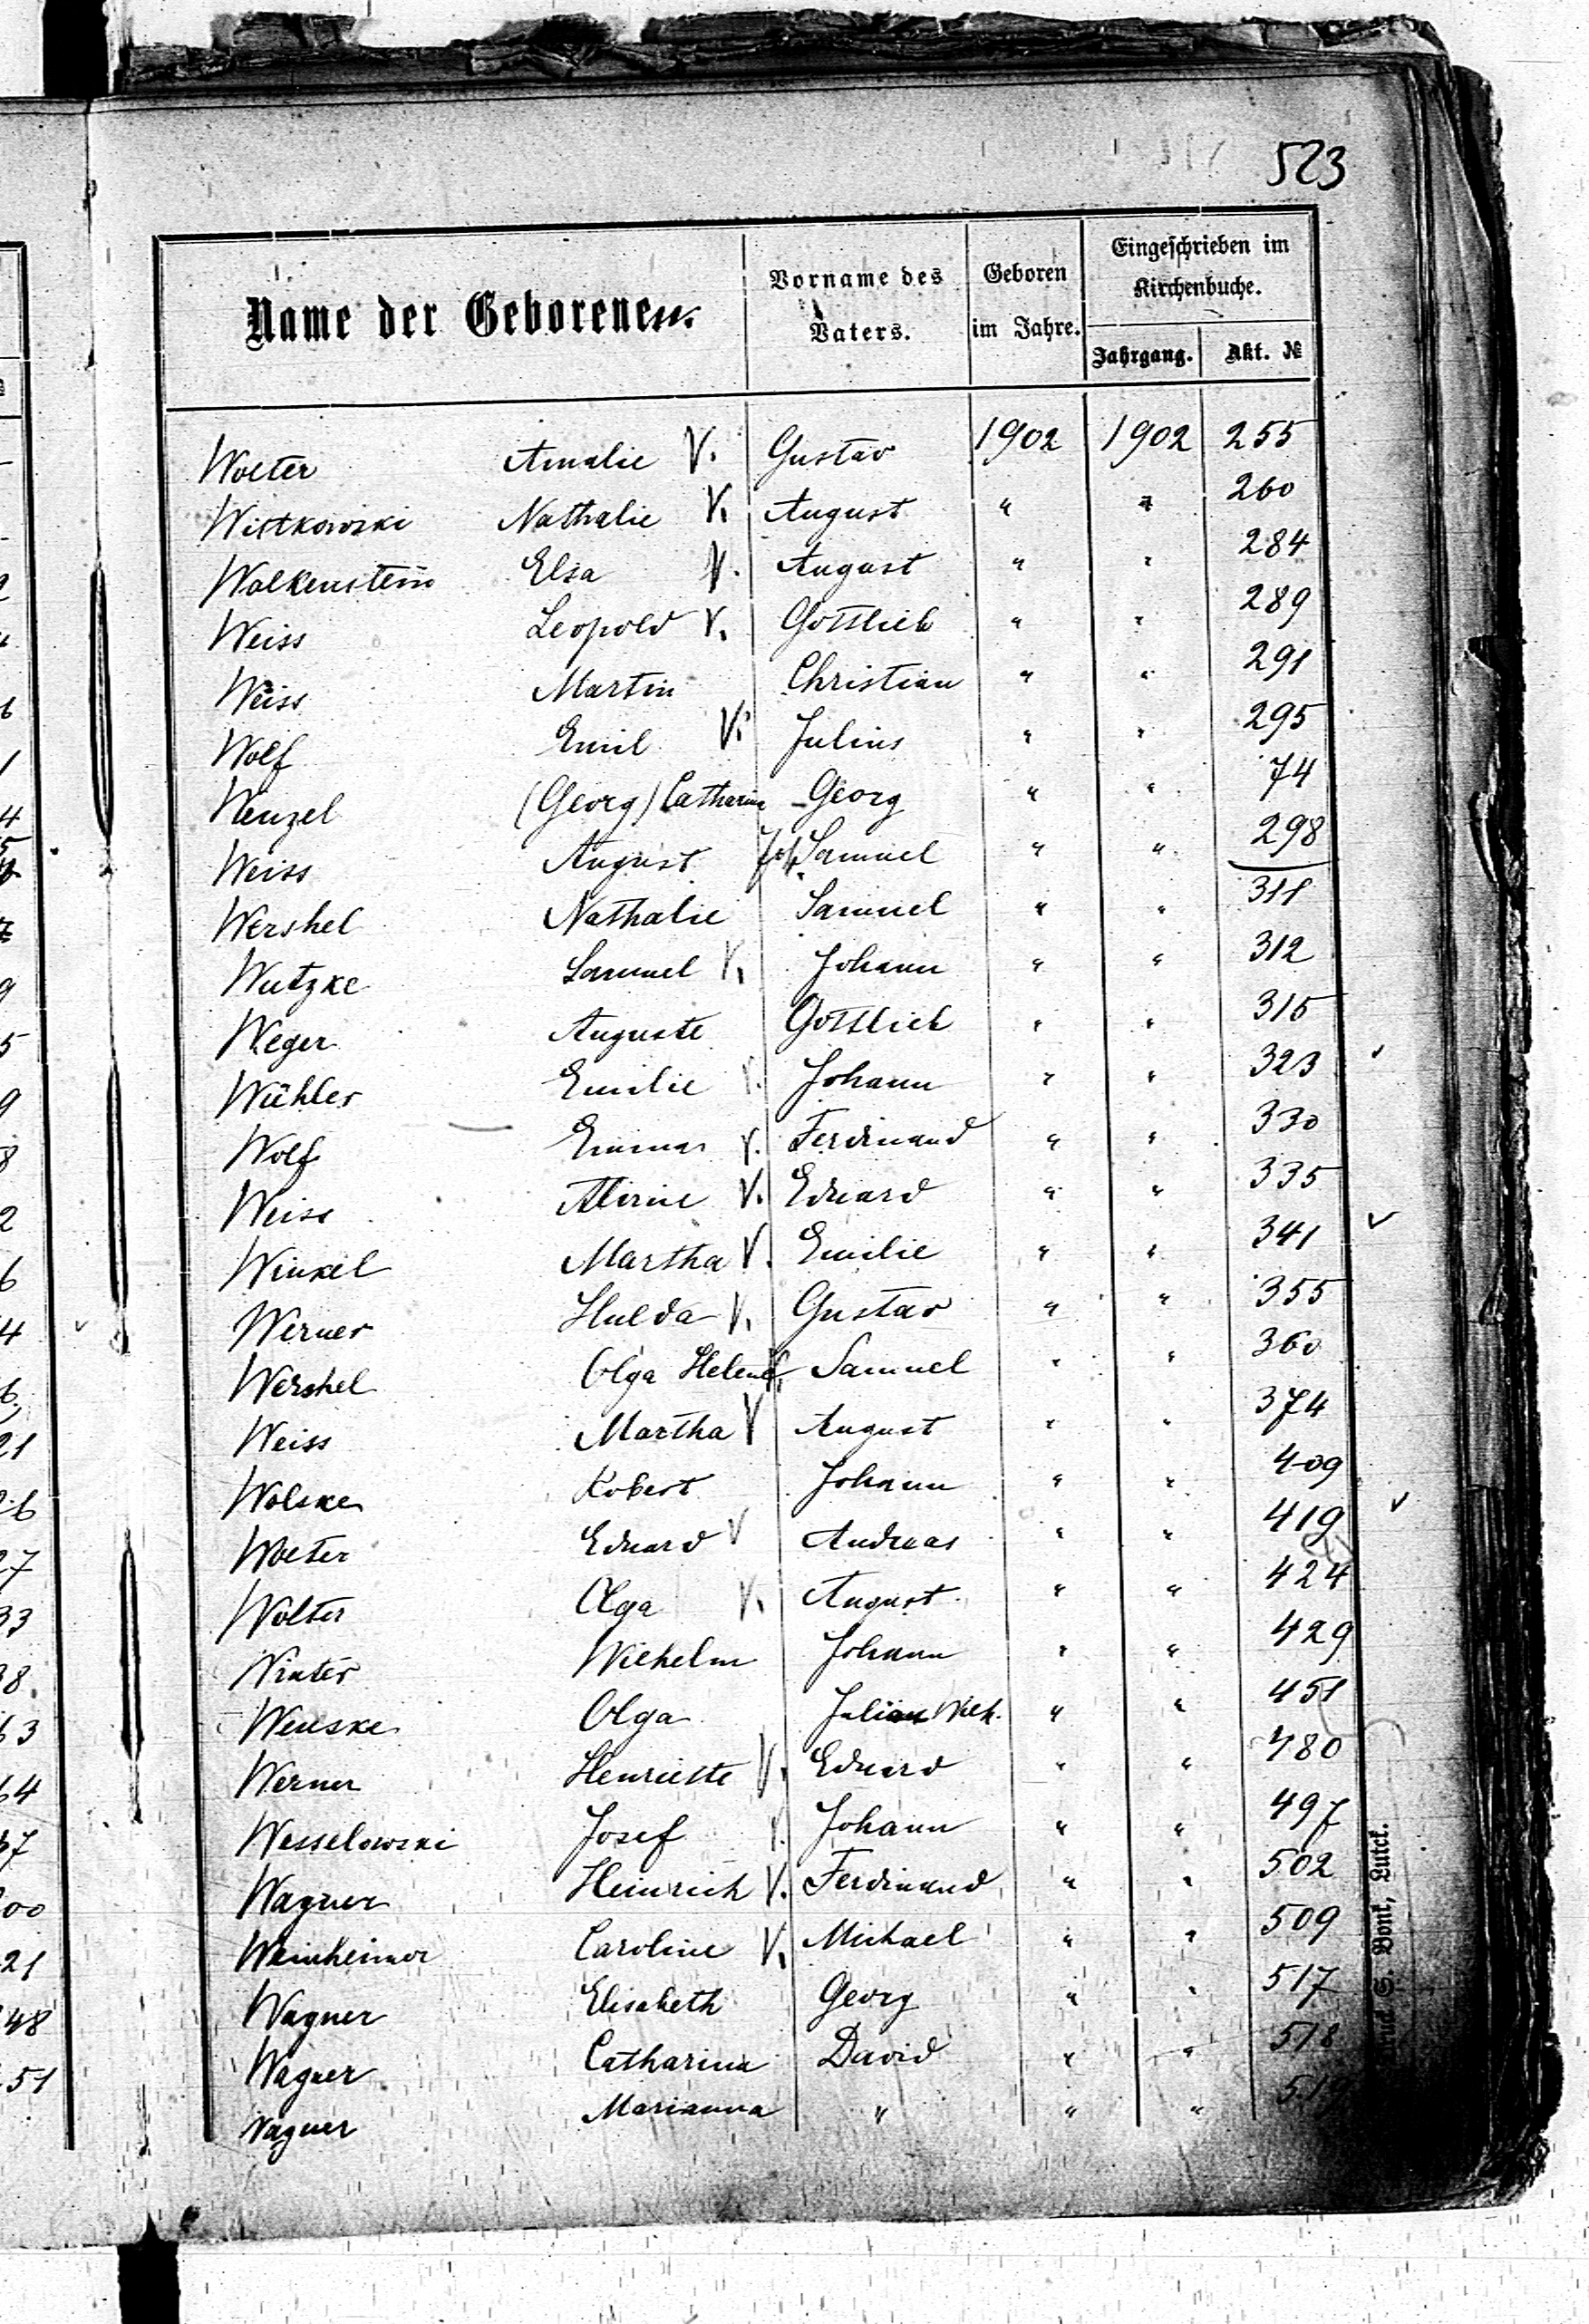 523
Name der Geborenen.
Vorname des Vaters.
Geboren im Jahre.
Eingeschrieben im Kirchenbuche.
Jahrgang. Akt. №
Wolter Amalie V. Gustav 1902 1902 255
Wittkowski Nathalie V. August " " 260
Wolkenstein Elsa V. August " " 284
Weiss Leopold V. Gottlieb " " 289
Weiss Martin Christian " " 291
Wolf Emil V. Julius " " 295
Wenzel (Georg) Catharina Georg " " 74
Weiss August Samuel " " 298
Wershel Nathalie Samuel " " 311
Wutzke Samuel V. Johann " " 312
Weger Auguste Gottlieb " " 315
Wühler Emilie V. Johann " " 323
Wolf Emma V. Ferdinand " " 330
Weiss Alwine V. Eduard " " 335
Winkel Martha V. Emilie " " 341
Werner Hulda V. Gustav " " 355
Wershel Olga Helene V. Samuel " " 360
Weiss Martha V August " " 374
Wolske Robert Johann " " 409
Wolter Eduard V Andreas " " 419
Wolter Olga V. August " " 424
Winter Wilhelm Johann " " 429
Wenske Olga Julian Wilh. " " 451
Werner Henriette V. Eduard " " 480
Wesselowski Josef V. Johann " " 497
Wagner Heinrich V. Ferdinand " " 502
Weinheimer Caroline V. Michael " " 509
Wagner Elisabeth Georg " " 517
Wagner Catharina David " " 518
Wagner Marianna " " "
S. Bonk, Lutck.